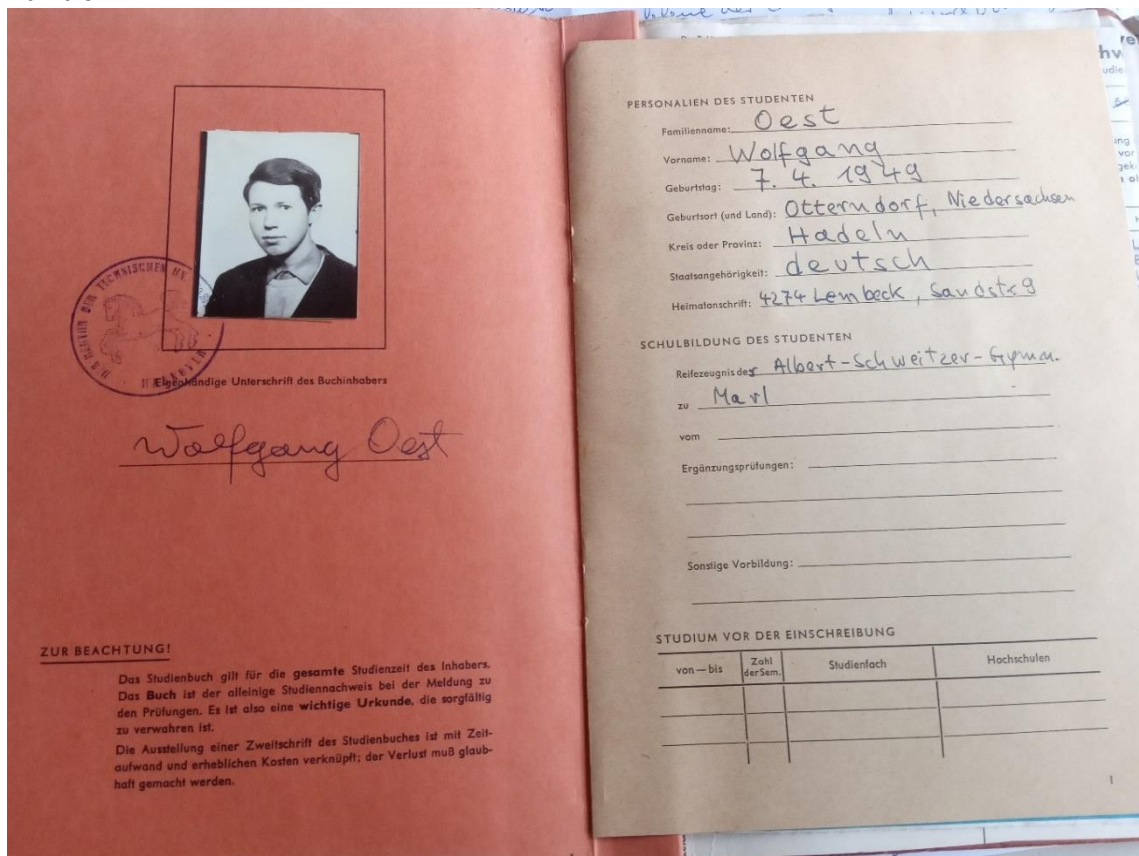 DER REKTOR DER TECHNISCHEN
HANNOVER
Eigenhändige Unterschrift des Buchinhabers
Wolfgang Oest
ZUR BEACHTUNG!
Das Studienbuch gilt für die gesamte Studienzeit des Inhabers.
Das Buch ist der alleinige Studiennachweis bei der Meldung zu
den Prüfungen. Es ist also eine wichtige Urkunde, die sorgfältig
zu verwahren ist.
Die Ausstellung einer Zweitschrift des Studienbuches ist mit Zeit-
aufwand und erheblichen Kosten verknüpft; der Verlust muß glaub-
haft gemacht werden.
PERSONALIEN DES STUDENTEN
Familienname: Oest
Vorname: Wolfgang
Geburtstag: 7. 4. 1949
Geburtsort (und Land): Otterndorf, Niedersachsen
Kreis oder Provinz: Hadeln
Staatsangehörigkeit: deutsch
Heimatanschrift: 4274 Lembeck, Sandstr 9
SCHULBILDUNG DES STUDENTEN
Reifezeugnis des Albert-Schweitzer-Gymn.
zu Marl
vom
Ergänzungsprüfungen:
Sonstige Vorbildung:
STUDIUM VOR DER EINSCHREIBUNG
von — bis Zahl der Sem. Studienfach Hochschulen
1